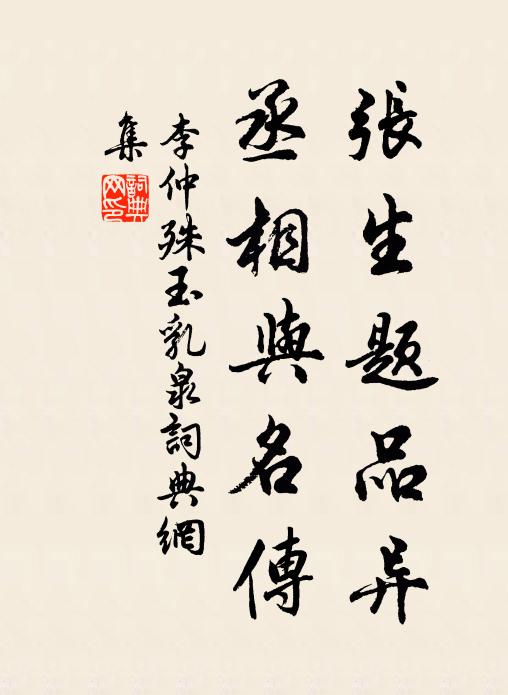 張生題品异
丞相與名傳
李仲殊玉乳泉詞典網
集
詞典網印